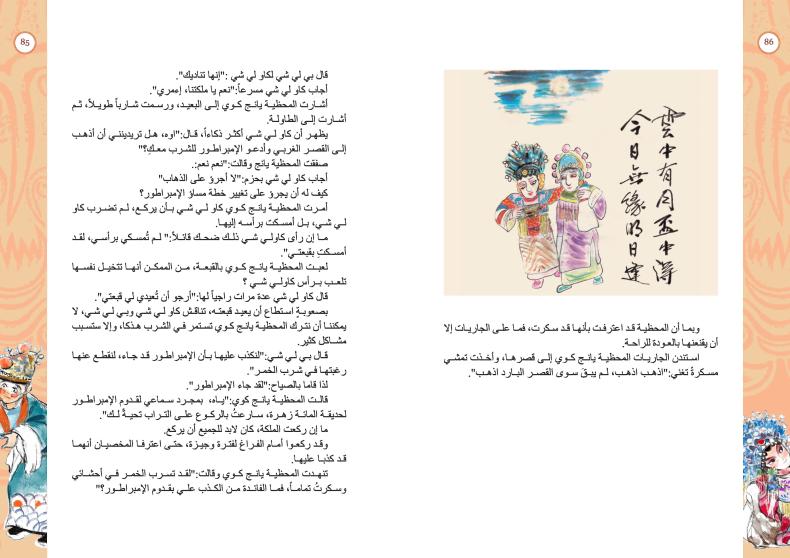 85
قال بي لي شي لكاو لي شي :"إنها تناديك".
أجاب كاو لي شي مسرعاً:"نعم يا ملكتنا، إءمري".
أشـارت المحظيـة يانـج كـوي إلـى البعيـد، ورسـمت شـارباً طويـلاً، ثـم
أشارت إلى الطاولـة.
يظهـر أن كاو لـي شـي أكثـر ذكاءاً، قـال:"اوه، هـل تريديننـي أن أذهـب
إلـى القصـر الغربـي وأدعـو الإمبراطـور للشـرب معـكِ؟"
صفقت المحظية يانج وقالت:"نعم نعم:.
أجاب كاو لي شي بحزم:"لا أجرؤ على الذهاب"
كيف له أن يجرؤ على تغيير خطة مساؤ الإمبراطور؟
أمـرت المحظيـة يانـج كـوي كاو لـي شـي بـأن يركـع، لـم تضـرب كاو
لـي شـي، بـل أمسـكت برأسـه إليهـا.
مـا إن رأى كاولـي شـي ذلـك ضحـك قائـلاً:" لـم تُمسـكي برأسـي، لقـد
أمسـكتِ بقبعتي".
لعبـت المحظيـة يانـج كـوي بالقبعـة، مـن الممكـن أنهـا تتخيـل نفسـها
تلعـب بـرأس كاولـي شـي ؟
قال كاو لي شي عدة مرات راجياً لها:"أرجو أن تُعيدي لي قبعتي".
بصعوبةٍ استطاع أن يعيـد قبعتـه، تناقـش كاو لـي شـي وبـي لـي شـي، لا
يمكننـا أن نتـرك المحظيـة يانـج كـوي تسـتمر فـي الشـرب هـكـذا، وإلا ستسبب
مشـاكل كثير.
قـال بـي لـي شـي:"لنكذب عليهـا بـأن الإمبراطور قـد جـاء، لنقطـع عنهـا
رغبتهـا فـي شـرب الخمـر".
لذا قاما بالصياح:"لقد جاء الإمبراطور".
قالـت المحظيـة يانـج كوي:"يـاه، بمجـرد سـماعي لقـدوم الإمبراطـور
لحديقـة المائـة زهـرة، سـارعتُ بالركـوع علـى التـراب تحيـةً لـك".
ما إن ركعت الملكة، كان لابد للجميع أن يركع.
وقـد ركعـوا أمـام الفـراغ لفتـرة وجيـزة، حتـى اعترفـا المخصيـان أنهمـا
قـد كذبـا عليهـا.
تنهـدت المحظيـة يانـج كـوي وقالت:"لقـد تسـرب الخمـر فـي أحشـائي
وسـكرتُ تمامـاً، فمـا الفائـدة مـن الكـذب علـي بقـدوم الإمبراطـور؟"
86
雲中有月盃中
今日無緣明日
وبمـا أن المحظيـة قـد اعترفـت بأنهـا قـد سـكرت، فمـا علـى الجاريـات إلا
أن يقنعنهـا بالعـودة للراحـة.
اسـتندن الجاريـات المحظيـة يانـج كـوي إلـى قصرهـا، وأخـذت تمشـي
مسـكرةً تغني:"اذهـب اذهـب، لـم يبـقَ سـوى القصـر البـارد اذهـب".